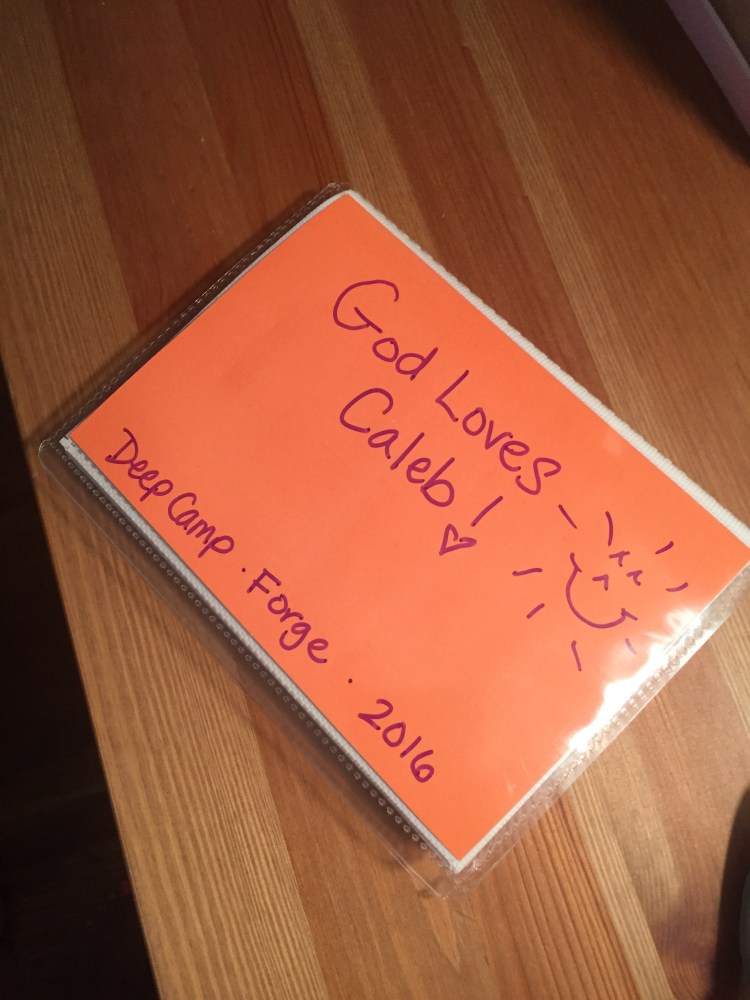 God Loves
Caleb!
Deep Camp · Forge · 2016